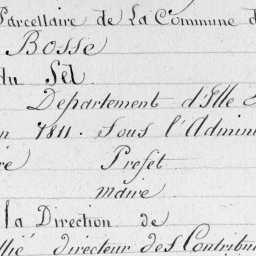 Parcellaire de La Commune d
Bosse
du Sel
Departement d'Ille
n 1811. Sous l'Admini
re Prefet
maire
la Direction de
directeur des Contribu